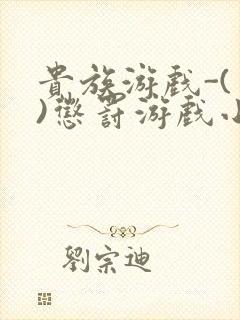 貴族游戲-(
)懲罰游戲小
劉宗迪